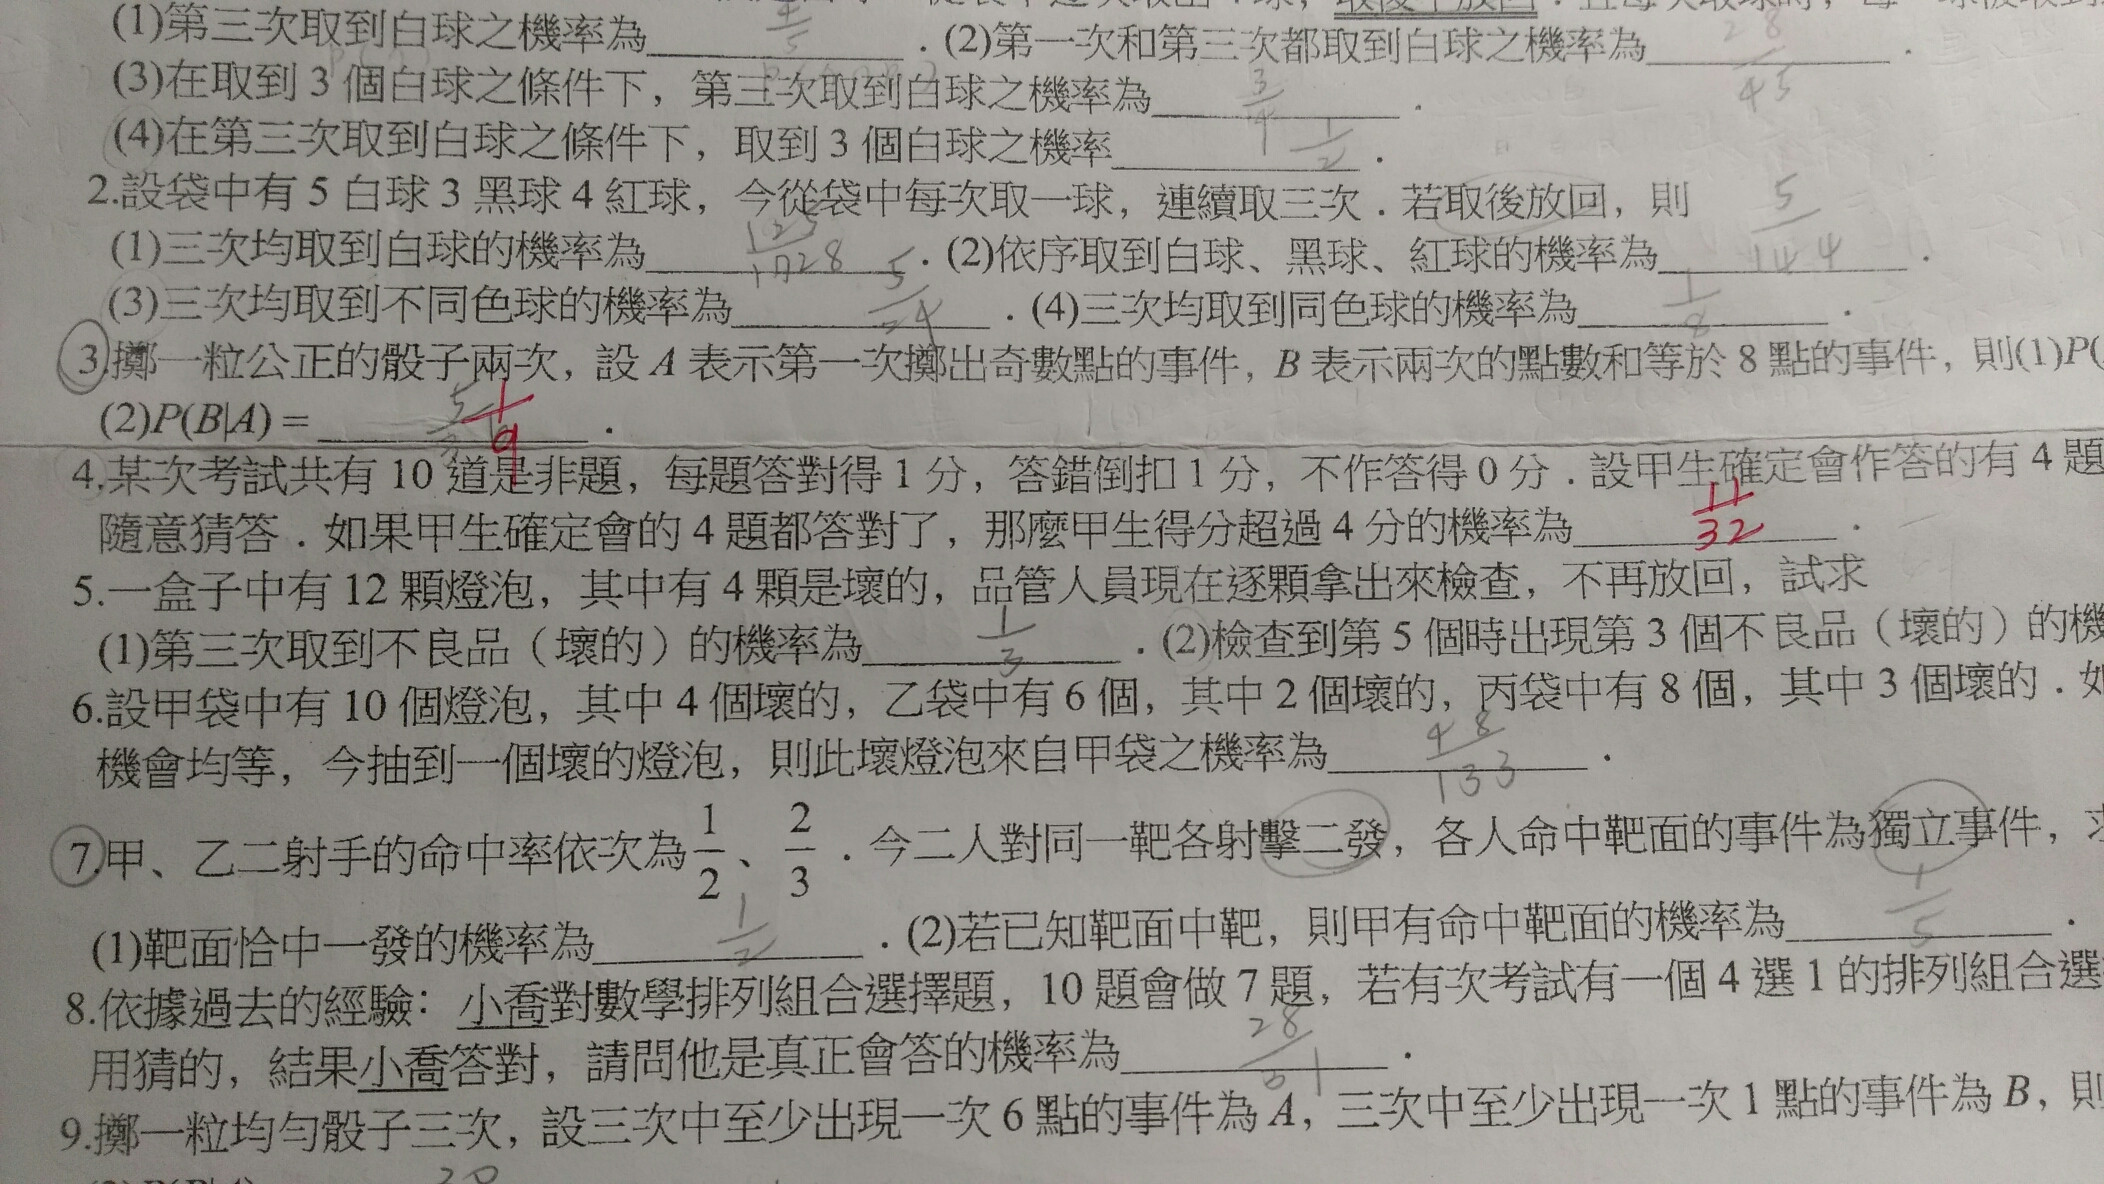 (1)第三次取到白球之機率為 4/5 . (2)第一次和第三次都取到白球之機率為 28/45 .
(3)在取到 3 個白球之條件下，第三次取到白球之機率為 3/4 .
(4)在第三次取到白球之條件下，取到 3 個白球之機率 1/2 .
2.設袋中有 5 白球 3 黑球 4 紅球，今從袋中每次取一球，連續取三次．若取後放回，則
(1)三次均取到白球的機率為 125/1728 . (2)依序取到白球、黑球、紅球的機率為 5/144 .
(3)三次均取到不同色球的機率為 5/24 . (4)三次均取到同色球的機率為 1/8 .
3.擲一粒公正的骰子兩次，設 A 表示第一次擲出奇數點的事件，B 表示兩次的點數和等於 8 點的事件，則(1)P(
(2)P(B|A) = 1/9 .
4.某次考試共有 10 道是非題，每題答對得 1 分，答錯倒扣 1 分，不作答得 0 分．設甲生確定會作答的有 4 題
隨意猜答．如果甲生確定會的 4 題都答對了，那麼甲生得分超過 4 分的機率為 11/32 .
5.一盒子中有 12 顆燈泡，其中有 4 顆是壞的，品管人員現在逐顆拿出來檢查，不再放回，試求
(1)第三次取到不良品（壞的）的機率為 1/3 . (2)檢查到第 5 個時出現第 3 個不良品（壞的）的機
6.設甲袋中有 10 個燈泡，其中 4 個壞的，乙袋中有 6 個，其中 2 個壞的，丙袋中有 8 個，其中 3 個壞的．如
機會均等，今抽到一個壞的燈泡，則此壞燈泡來自甲袋之機率為 48/133 .
7.甲、乙二射手的命中率依次為 1/2、2/3．今二人對同一靶各射擊二發，各人命中靶面的事件為獨立事件，求
(1)靶面恰中一發的機率為 1/2 . (2)若已知靶面中靶，則甲有命中靶面的機率為 1/5 .
8.依據過去的經驗：小喬對數學排列組合選擇題，10 題會做 7 題，若有次考試有一個 4 選 1 的排列組合選
用猜的，結果小喬答對，請問他是真正會答的機率為 28/ .
9.擲一粒均勻骰子三次，設三次中至少出現一次 6 點的事件為 A，三次中至少出現一次 1 點的事件為 B，則